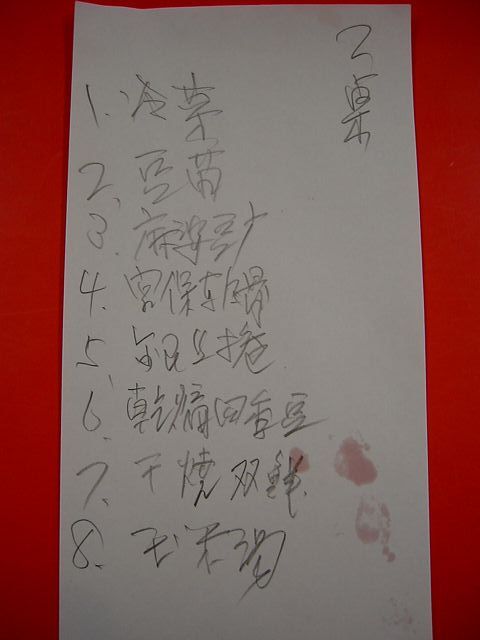 2桌
1. 冷菜
2. 豆苗
3. 麻婆豆
4. 宮保軟骨
5. 銀丝捲
6. 乾煸四季豆
7. 干燒双鮮
8. 玉米湯